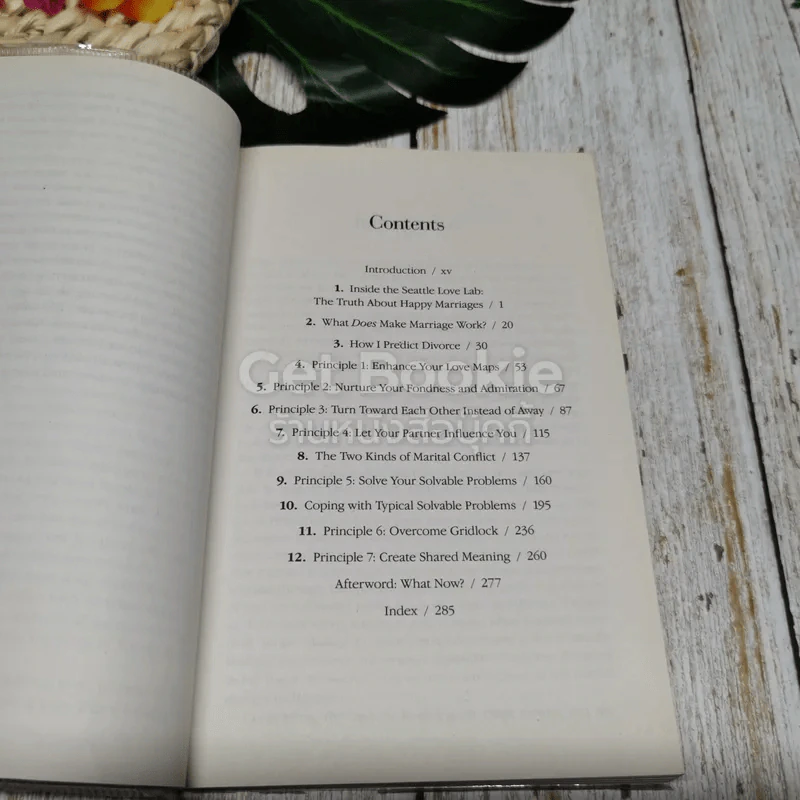 Contents
Introduction / xv
1. Inside the Seattle Love Lab:
The Truth About Happy Marriages / 1
2. What Does Make Marriage Work? / 20
3. How I Predict Divorce / 30
4. Principle 1: Enhance Your Love Maps / 53
Get Bookie
5. Principle 2: Nurture Your Fondness and Admiration / 67
6. Principle 3: Turn Toward Each Other Instead of Away / 87
ร้านหนังสือบุ๊คกี้
7. Principle 4: Let Your Partner Influence You / 115
8. The Two Kinds of Marital Conflict / 137
9. Principle 5: Solve Your Solvable Problems / 160
10. Coping with Typical Solvable Problems / 195
11. Principle 6: Overcome Gridlock / 236
12. Principle 7: Create Shared Meaning / 260
Afterword: What Now? / 277
Index / 285